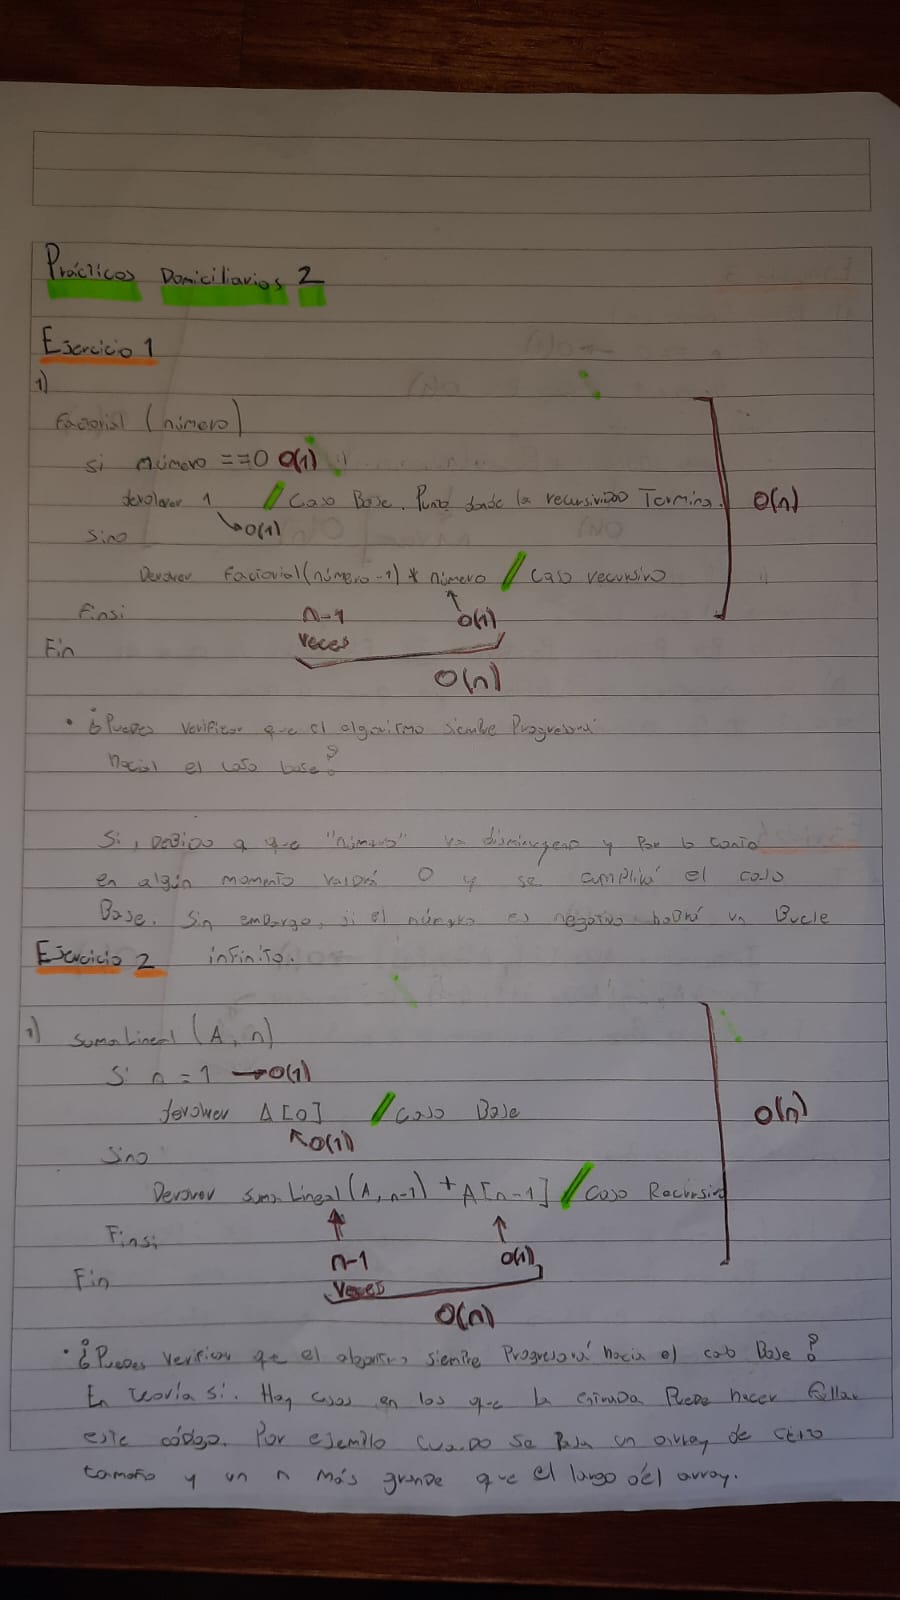 Prácticos Domiciliarios 2
Ejercicio 1
1)
Factorial (número)
si número ==0 O(1)
devolver 1 // Caso Base. Punto donde la recursividad Termina.
O(1)
O(n)
sino
Devolver Factorial(número-1) * número // Caso recursivo
Finsi
n-1 veces
O(1)
Fin
O(n)
• ¿Puedes verificar que el algoritmo siempre Progresará
hacia el caso base?
Si, Debido a que "número" va disminuyendo y Por lo tanto
en algún momento valdrá 0 y se cumplirá el caso
Base. Sin embargo, si el número es negativo habrá un Bucle
infinito.
Ejercicio 2
1) SumaLineal (A, n)
Si n = 1 → O(1)
devolver A[0] // Caso Base
O(1)
O(n)
Sino
Devolver SumaLineal(A, n-1) + A[n-1] // Caso Recursivo
Finsi
n-1 veces
O(1)
Fin
O(n)
• ¿Puedes verificar que el algoritmo siempre Progresará hacia el caso Base?
En teoría si. Hay casos en los que la entrada Puede hacer fallar
este código. Por ejemplo cuando se pasa un array de cero
tamaño y un n más grande que el largo del array.